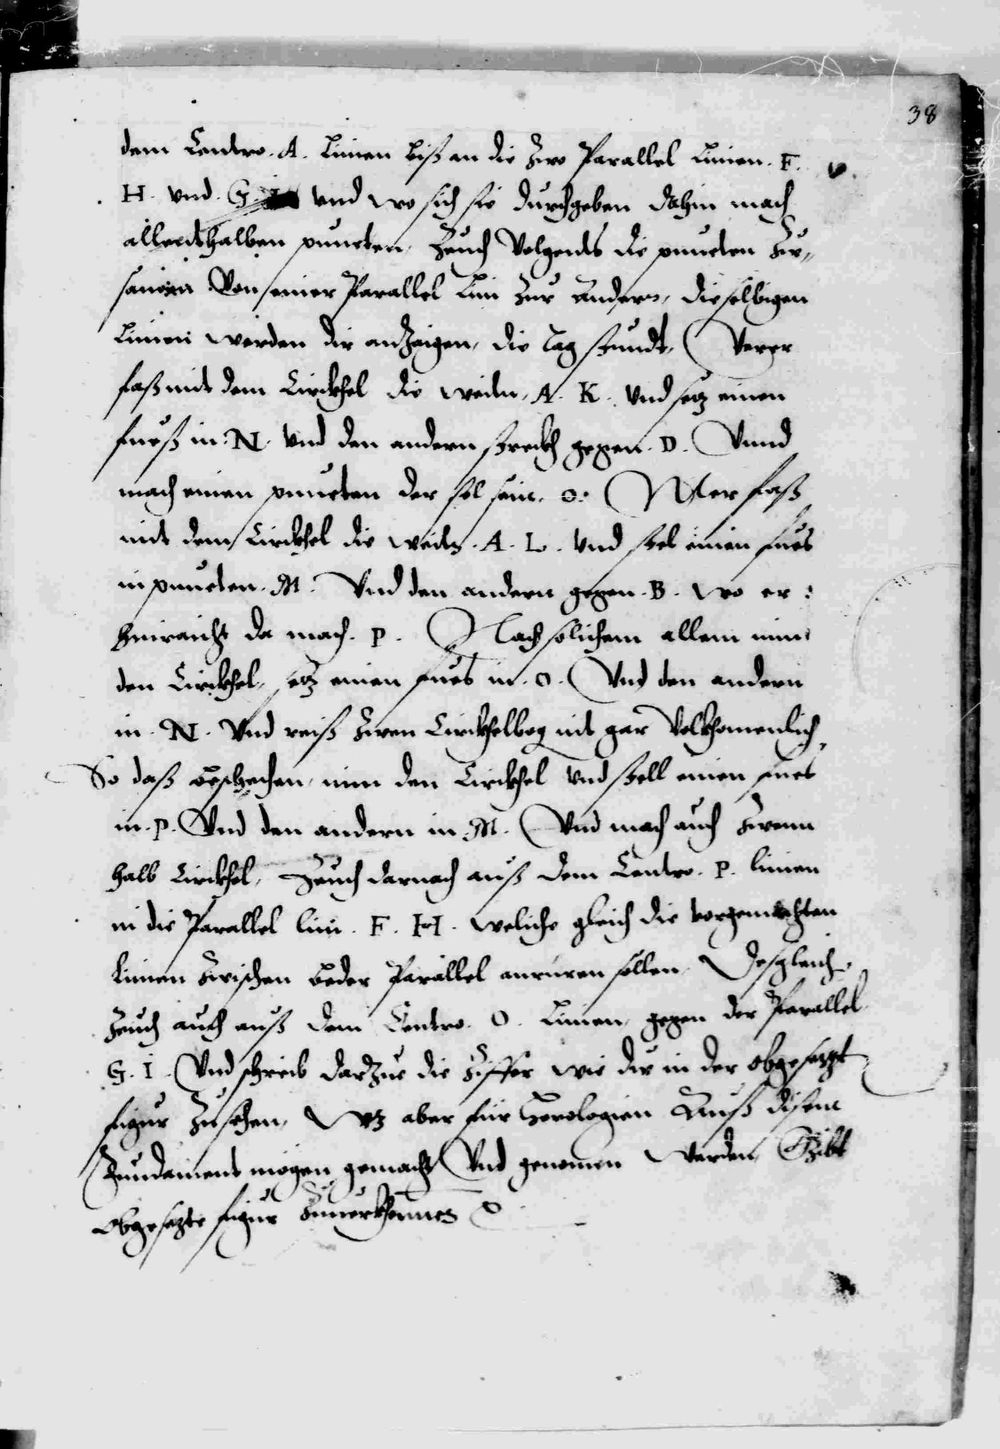 38
dem Centro. A. Linien biß an die zwo Parallel Linien. F.
H. vnd. G. I. vnd wo sich sie durchgeben dahin mach
allenthalben puncten, Zeuch Volgents die puncten Zu„
samen Von einer Parallel Lini Zur Andern, dieselbigen
Linien werden dir anzaigen, die tag stundt, Verer
faß mit dem Circkhel die weiten, A. K. Vnd setz einen
fueß in. N. Vnd den andern streckh gegen. D. Vnnd
mach einen puncten der sol sein. O. Mer faß
mit dem Circkhel die weiten. A. L. Vnd stel einen fues
in puncten. M. Vnd den andern gegen. B. wo er
hinraicht da mach. P. Nach solichem allem nim
den Circkhel, setz einen fues in. O. Vnd den andern
in. N. Vnd reiß Zwen Circkhelbog nit gar Volkhomenlich,
So daß beschechen, nim den Circkhel Vnd stell einen fues
in. P. Vnd den andern in. M. Vnd mach auch Zwenn
halb Circkhel, Zeuch darnach auß dem Centro. P. linien
in die Parallel lini. F. H. weliche gleich die vorgemachten
Linien Zwischen beder Parallel anruren sollen, Desgleich
Zeuch auch auß dem Centro. O. Linien, gegen der Parallel
G. I. Vnd schreib darzue die Ziffer wie dir in der obgesetzt
figur Zusehen, Was aber für Horologien Auß disem
Fundament mögen gemacht Vnd genomen werden, Gibt
obgesetzte figur Zuuerkhennen